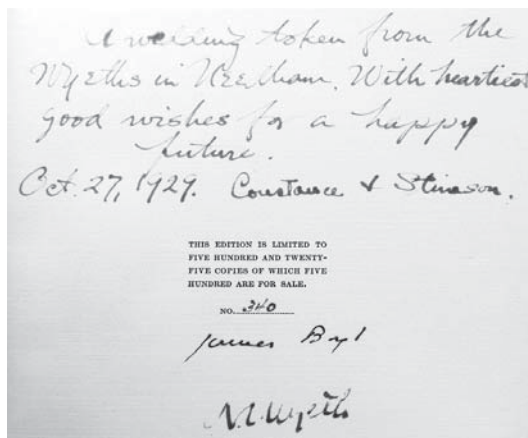 A wedding token from the
Wyeths in Needham. With heartiest
good wishes for a happy
future.
Oct. 27, 1929. Constance & Stimson.
THIS EDITION IS LIMITED TO
FIVE HUNDRED AND TWENTY-
FIVE COPIES OF WHICH FIVE
HUNDRED ARE FOR SALE.
NO. 340
James Boyd
N.C. Wyeth